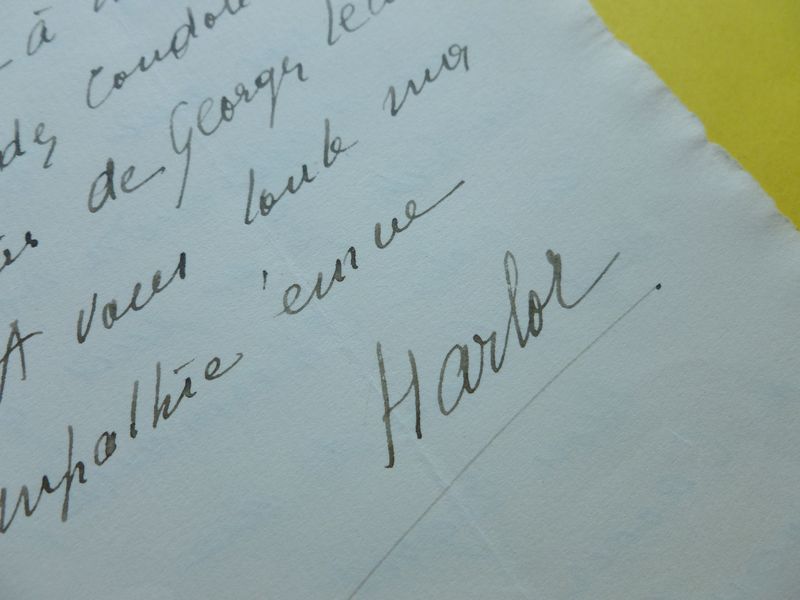 à
des condolé
de Georges Le
A vous toute ma
mpathie émue
Harlor